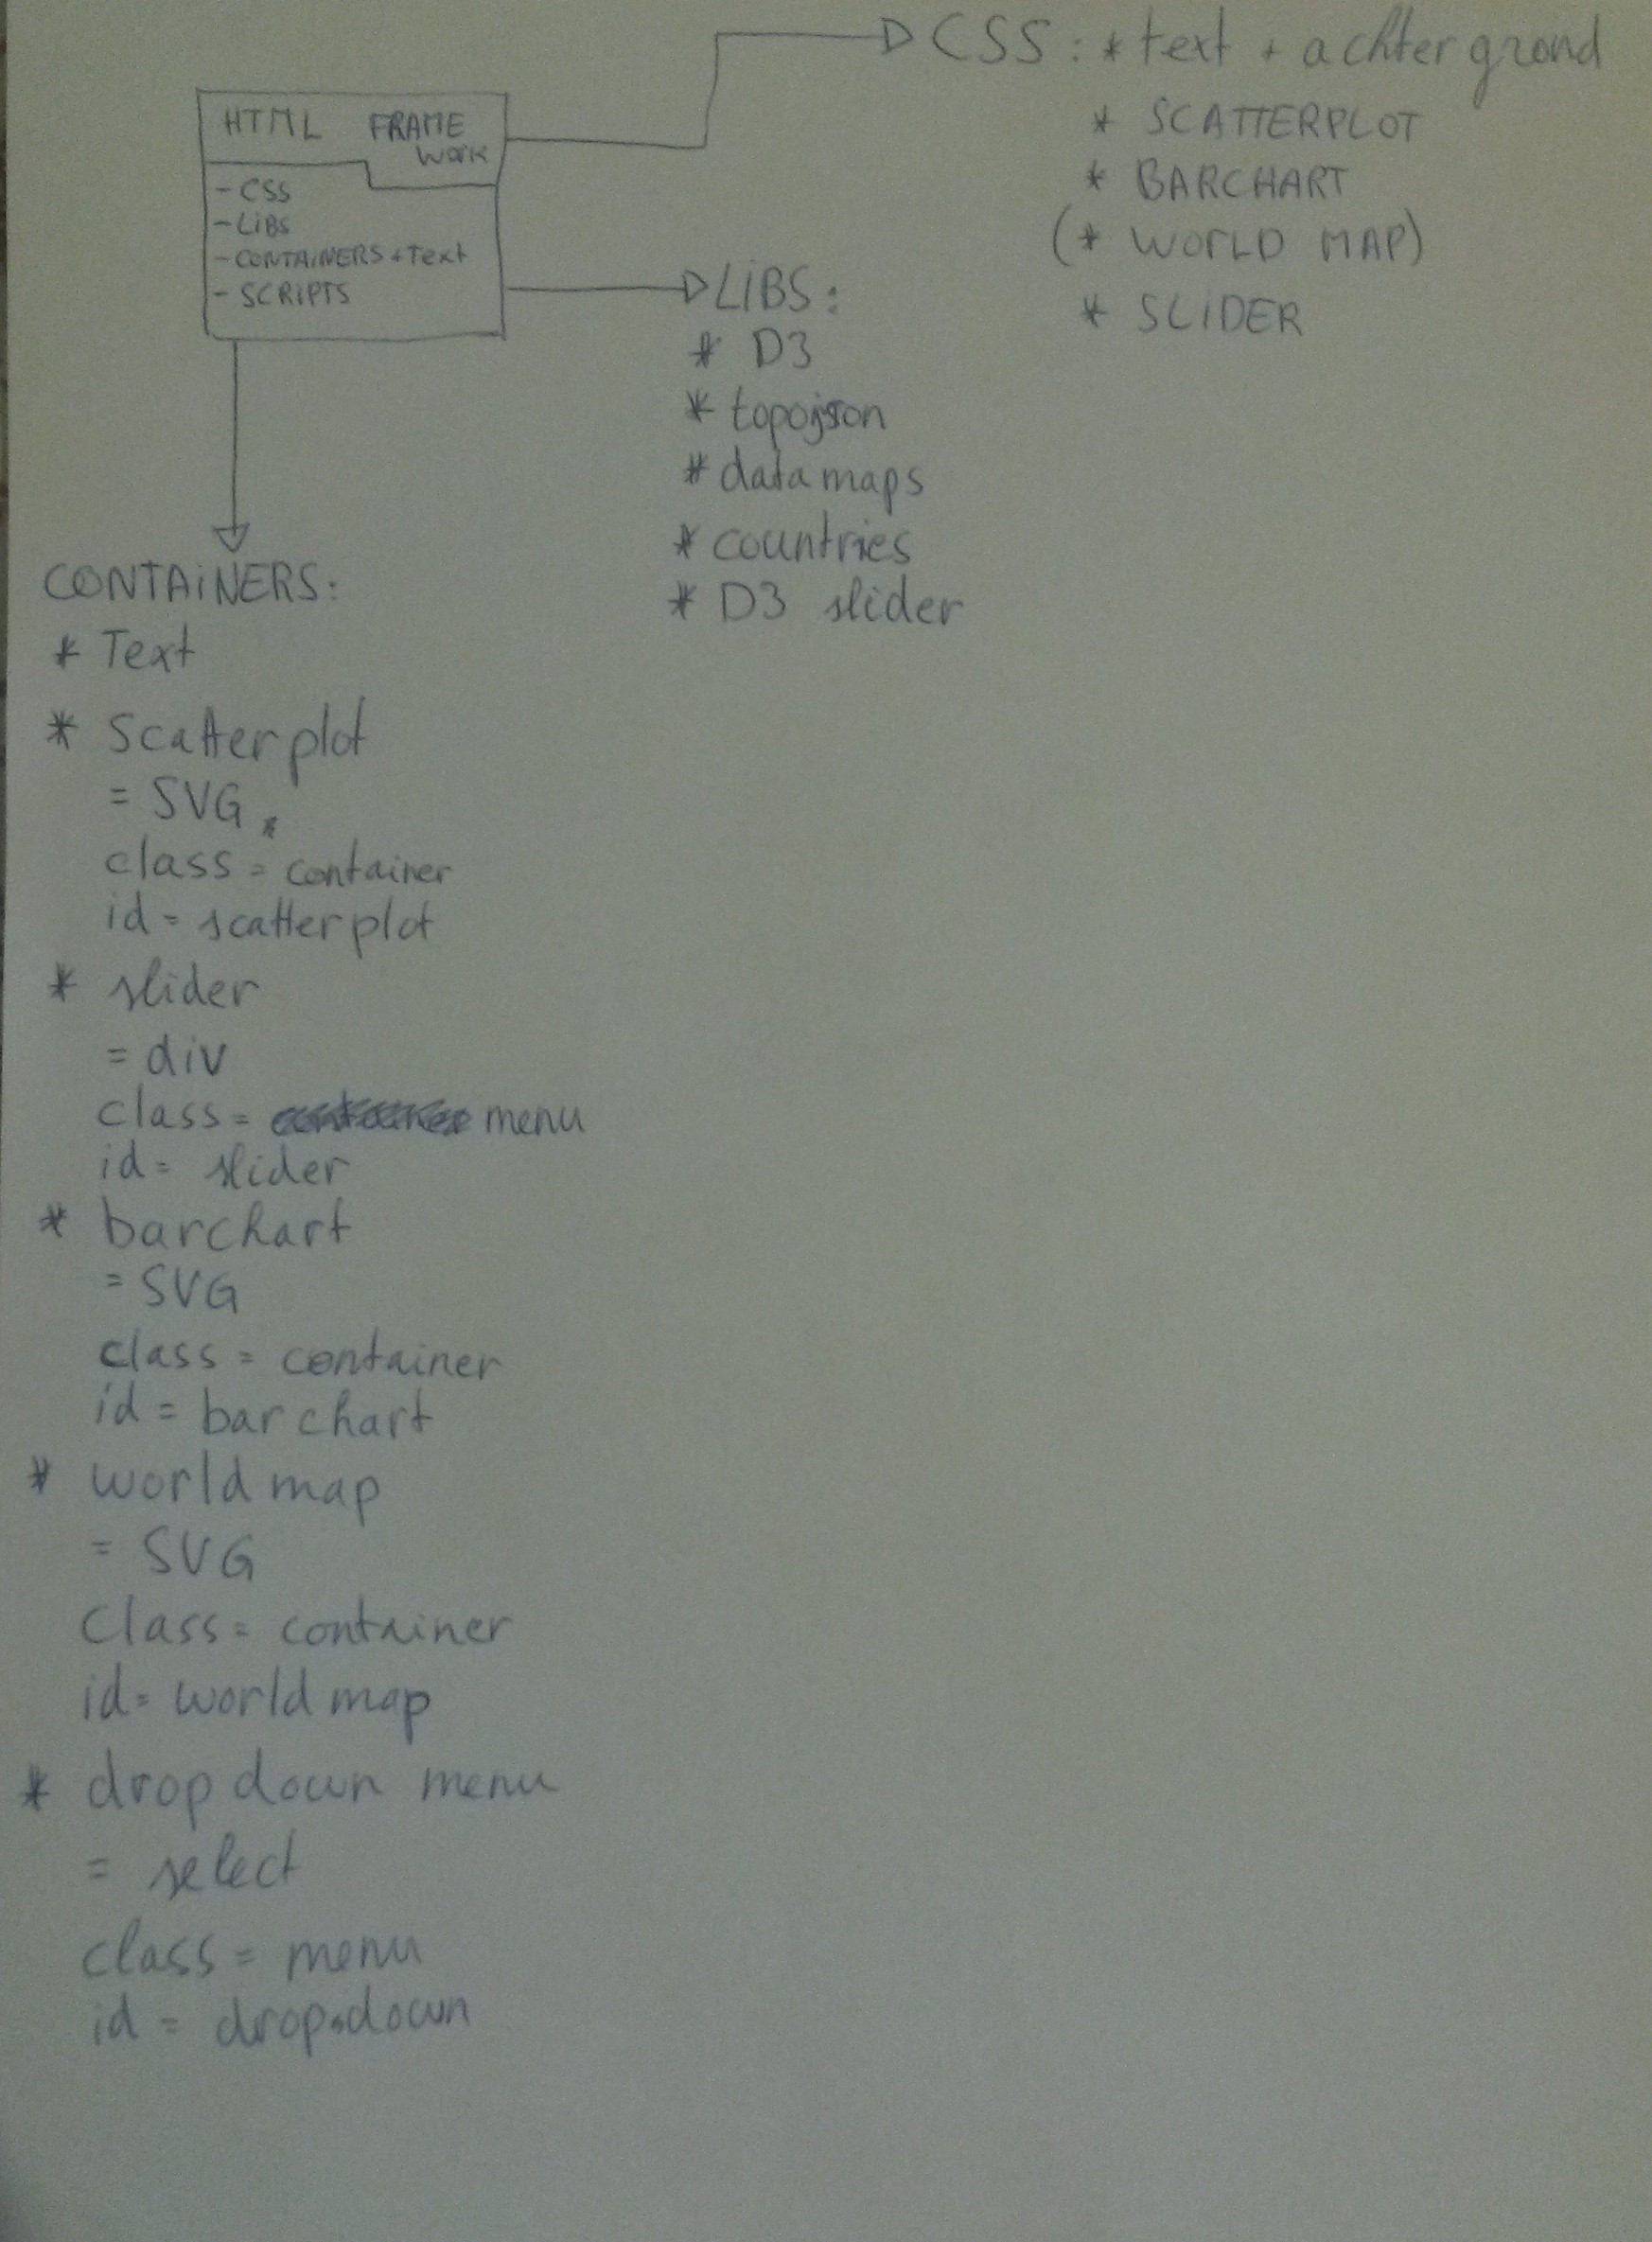 HTML FRAME
WORK
- CSS
- LiBS
- CONTAiNERS + Text
- SCRiPTS
CSS : * text + achtergrond
* SCATTERPLOT
* BARCHART
(* WORLD MAP)
* SLiDER
LiBS :
* D3
* topojson
* datamaps
* countries
* D3 slider
CONTAiNERS:
* Text
* Scatterplot
= SVG *
class = container
id = scatterplot
* slider
= div
class = menu
id = slider
* barchart
= SVG
class = container
id = barchart
* worldmap
= SVG
Class = container
id = worldmap
* dropdown menu
= select
class = menu
id = dropdown